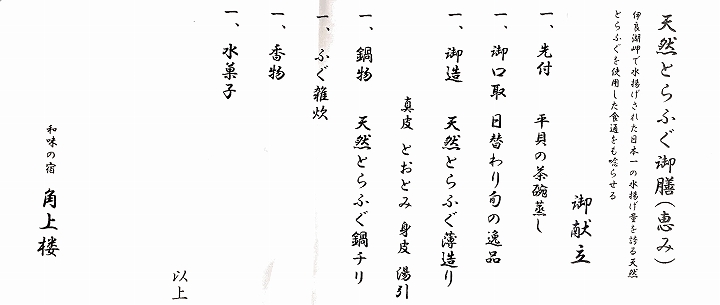 天然とらふぐ御膳(恵み)
伊良湖岬で水揚げされた日本一の水揚げ量を誇る天然
とらふぐを使用した食通をも唸らせる
御献立
一、先付 平貝の茶碗蒸し
一、御口取 日替わり旬の逸品
一、御造 天然とらふぐ薄造り
真皮 とおとみ 身皮 湯引
一、鍋物 天然とらふぐ鍋チリ
一、ふぐ雑炊
一、香物
一、水菓子
以上
和味の宿 角上楼